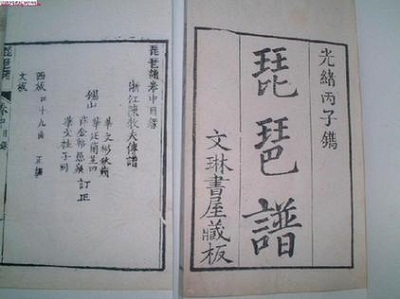 光緒丙子鐫
琵琶譜
文琳書屋藏板
琵琶譜卷中目錄
浙江陳牧夫傳譜
錫山
華文彬秋蘋
華文桂子同
訂正
西板四十九曲
文板